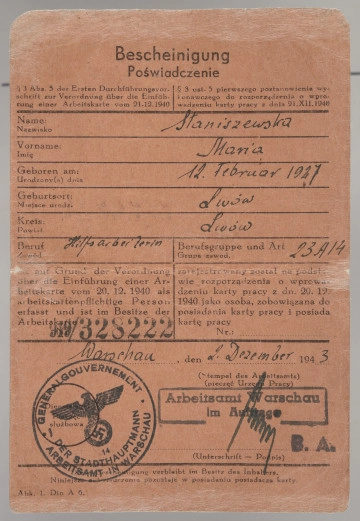 Bescheinigung
Poświadczenie
§ 3 Abs. 5 der Ersten Durchführungsvor-
schrift zur Verordnung über die Einfüh-
rung einer Arbeitskarte vom 21.12.1940
§ 3 ust. 5 pierwszego postanowienia wy-
konawczego do rozporządzenia o wpro-
wadzeniu karty pracy z dn. 21.XII.1940
Name: Staniszewska
Nazwisko
Vorname: Maria
Imię
Geboren am: 12. Februar 1927
Urodzony(a) dnia
Geburtsort: Lwów
Miejsce urodz.
Kreis: Lwów
Powiat
Beruf Hilfsarbeiterin
Zawód
Berufsgruppe und Art 23A14
Grupa zawod.
auf Grund der Verordnung
über die Einführung einer Ar-
beitskarte vom 20. 12. 1940 als
arbeitskartenpflichtige Person
erfasst und ist im Besitze der
Arbeitskarte 328222
zarejestrowany został na podsta-
wie rozporządzenia o wprowa-
dzeniu karty pracy z dn. 20. 12.
1940 jako osoba, zobowiązana do
posiadania karty pracy i posiada
kartę pracy
Nr.:
Warschau, den 2. Dezember 1943
(Stempel des Arbeitsamts)
(pieczęć Urzędu Pracy)
Arbeitsamt Warschau
im Auftrage
B. A.
służbowa
GENERALGOUVERNEMENT
DER STADTHAUPTMANN
ARBEITSAMT IN WARSCHAU
14
(Unterschrift — Podpis)
verbleibt im Besitz des Inhabers.
Niniejsze pozostaje w posiadaniu posiadacza karty.
Abk. 1. Din A 6.